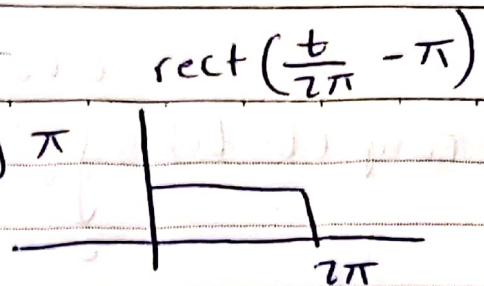 rect(t/2π - π)
π
2π